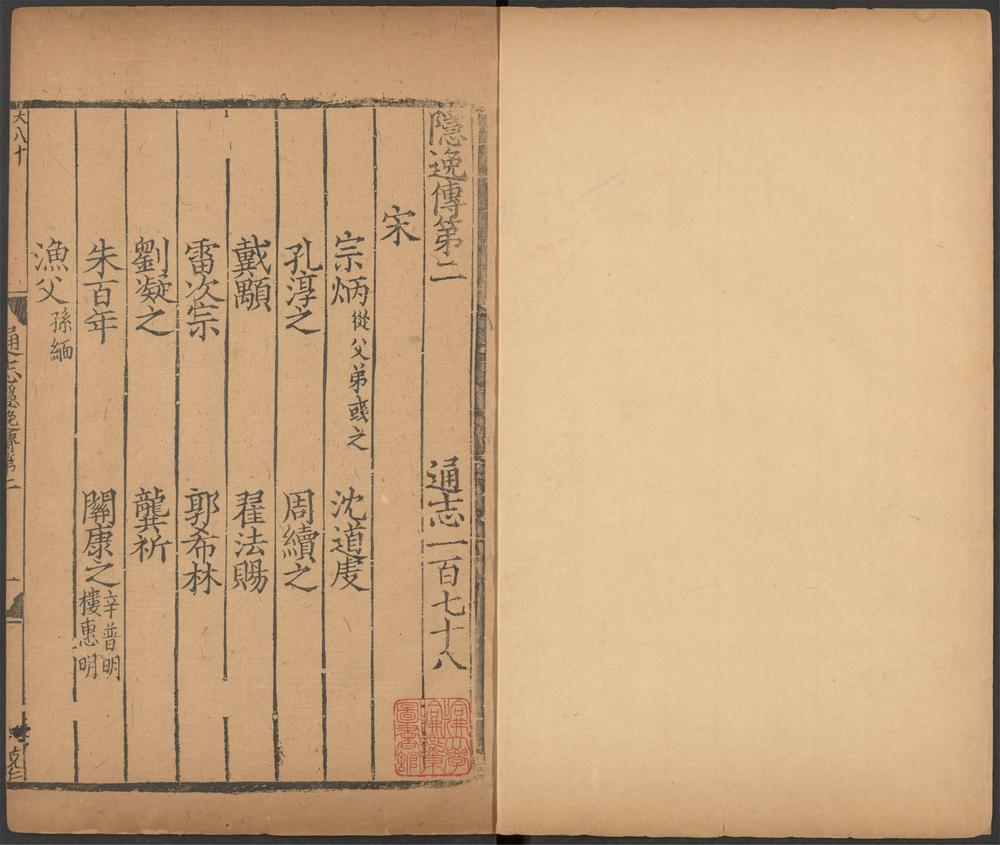 隱逸傳第二 通志一百七十八
宋
宗炳 從父弟彧之 沈道虔
孔淳之 周續之
戴顒 翟法賜
雷次宗 郭希林
劉凝之 龔祈
朱百年 關康之 辛普明 樓惠明
漁父 孫緬
大八十
通志隱逸傳第二
哈佛大學哈佛燕京圖書館